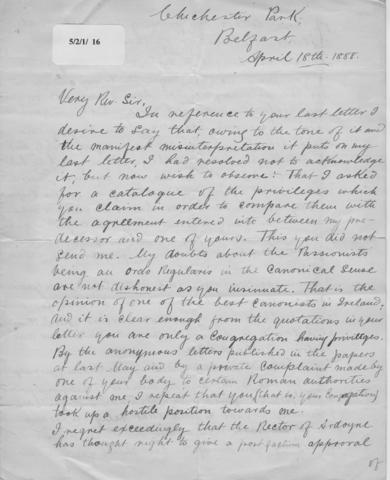 Chichester Park,
5/2/1/ 16
Belfast.
April 18th 1888.
Very Rev Sir,
In reference to your last letter I
desire to say that, owing to the tone of it and
the manifest misinterpretation it puts on my
last letter, I had resolved not to acknowledge
it, but now wish to observe: That I asked
for a catalogue of the privileges which
you claim in order to compare them with
the agreement entered into between my pre-
decessor and one of yours. This you did not
send me. My doubts about the Passionists
being an Ordo Regularis in the Canonical Sense
are not dishonest as you insinuate. That is the
opinion of one of the best Canonists in Ireland;
and it is clear enough from the quotations in your
letter you are only a Congregation having privileges.
By the anonymous letters published in the papers
at last May and by a private Complaint made by
one of your body to certain Roman authorities
against me, I repeat that you (that is, your Congregation)
took up a hostile position towards me.
I regret exceedingly that the Rector of Ardoyne
has thought right to give a post factum approval
of